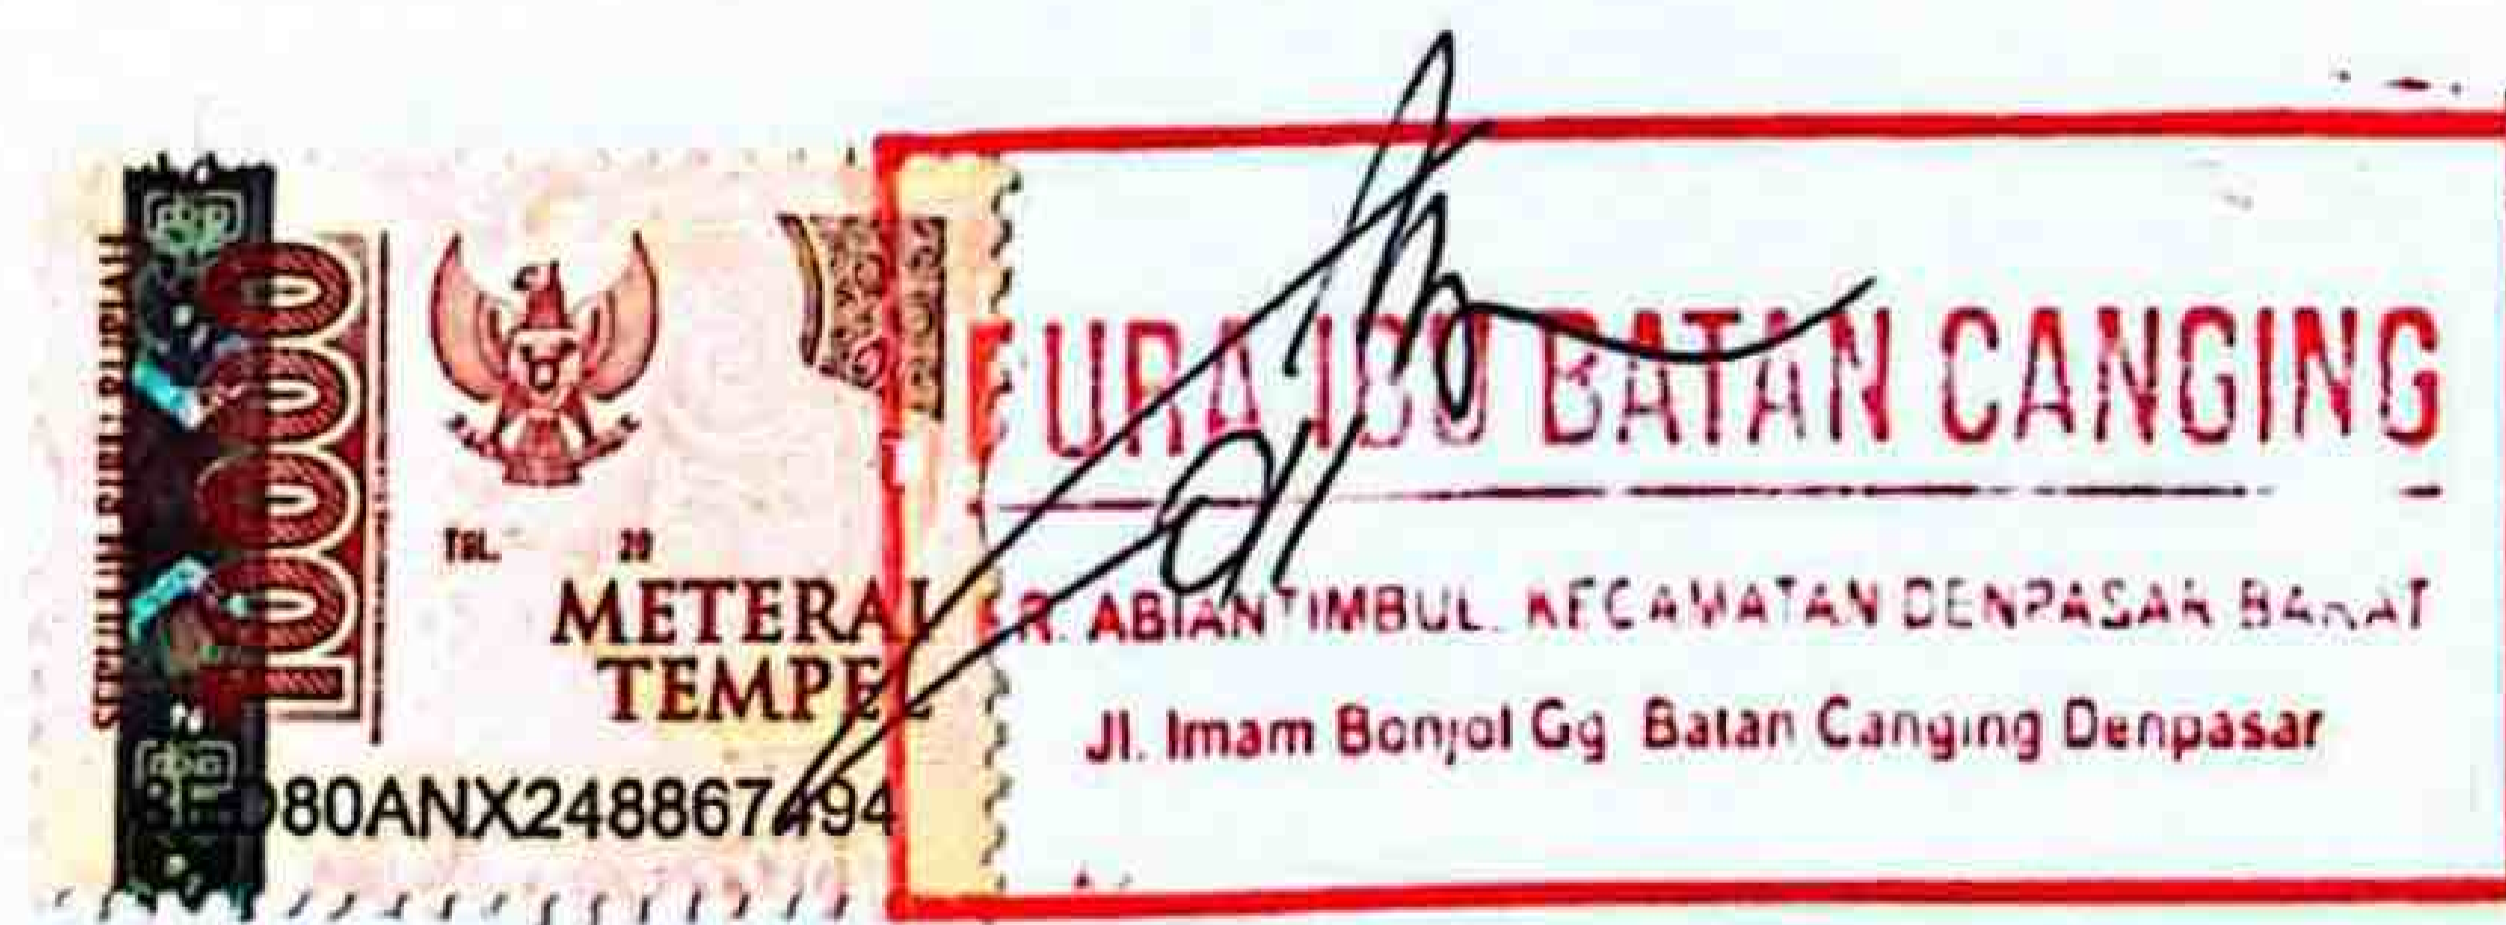 SEPULUH RIBU RUPIAH
10000
TGL. 20
METERAI
TEMPEL
80ANX248867494
PURA IBU BATAN CANGING
BR. ABIANTIMBUL. KECAMATAN DENPASAR BARAT
Jl. Imam Bonjol Gg Batan Canging Denpasar